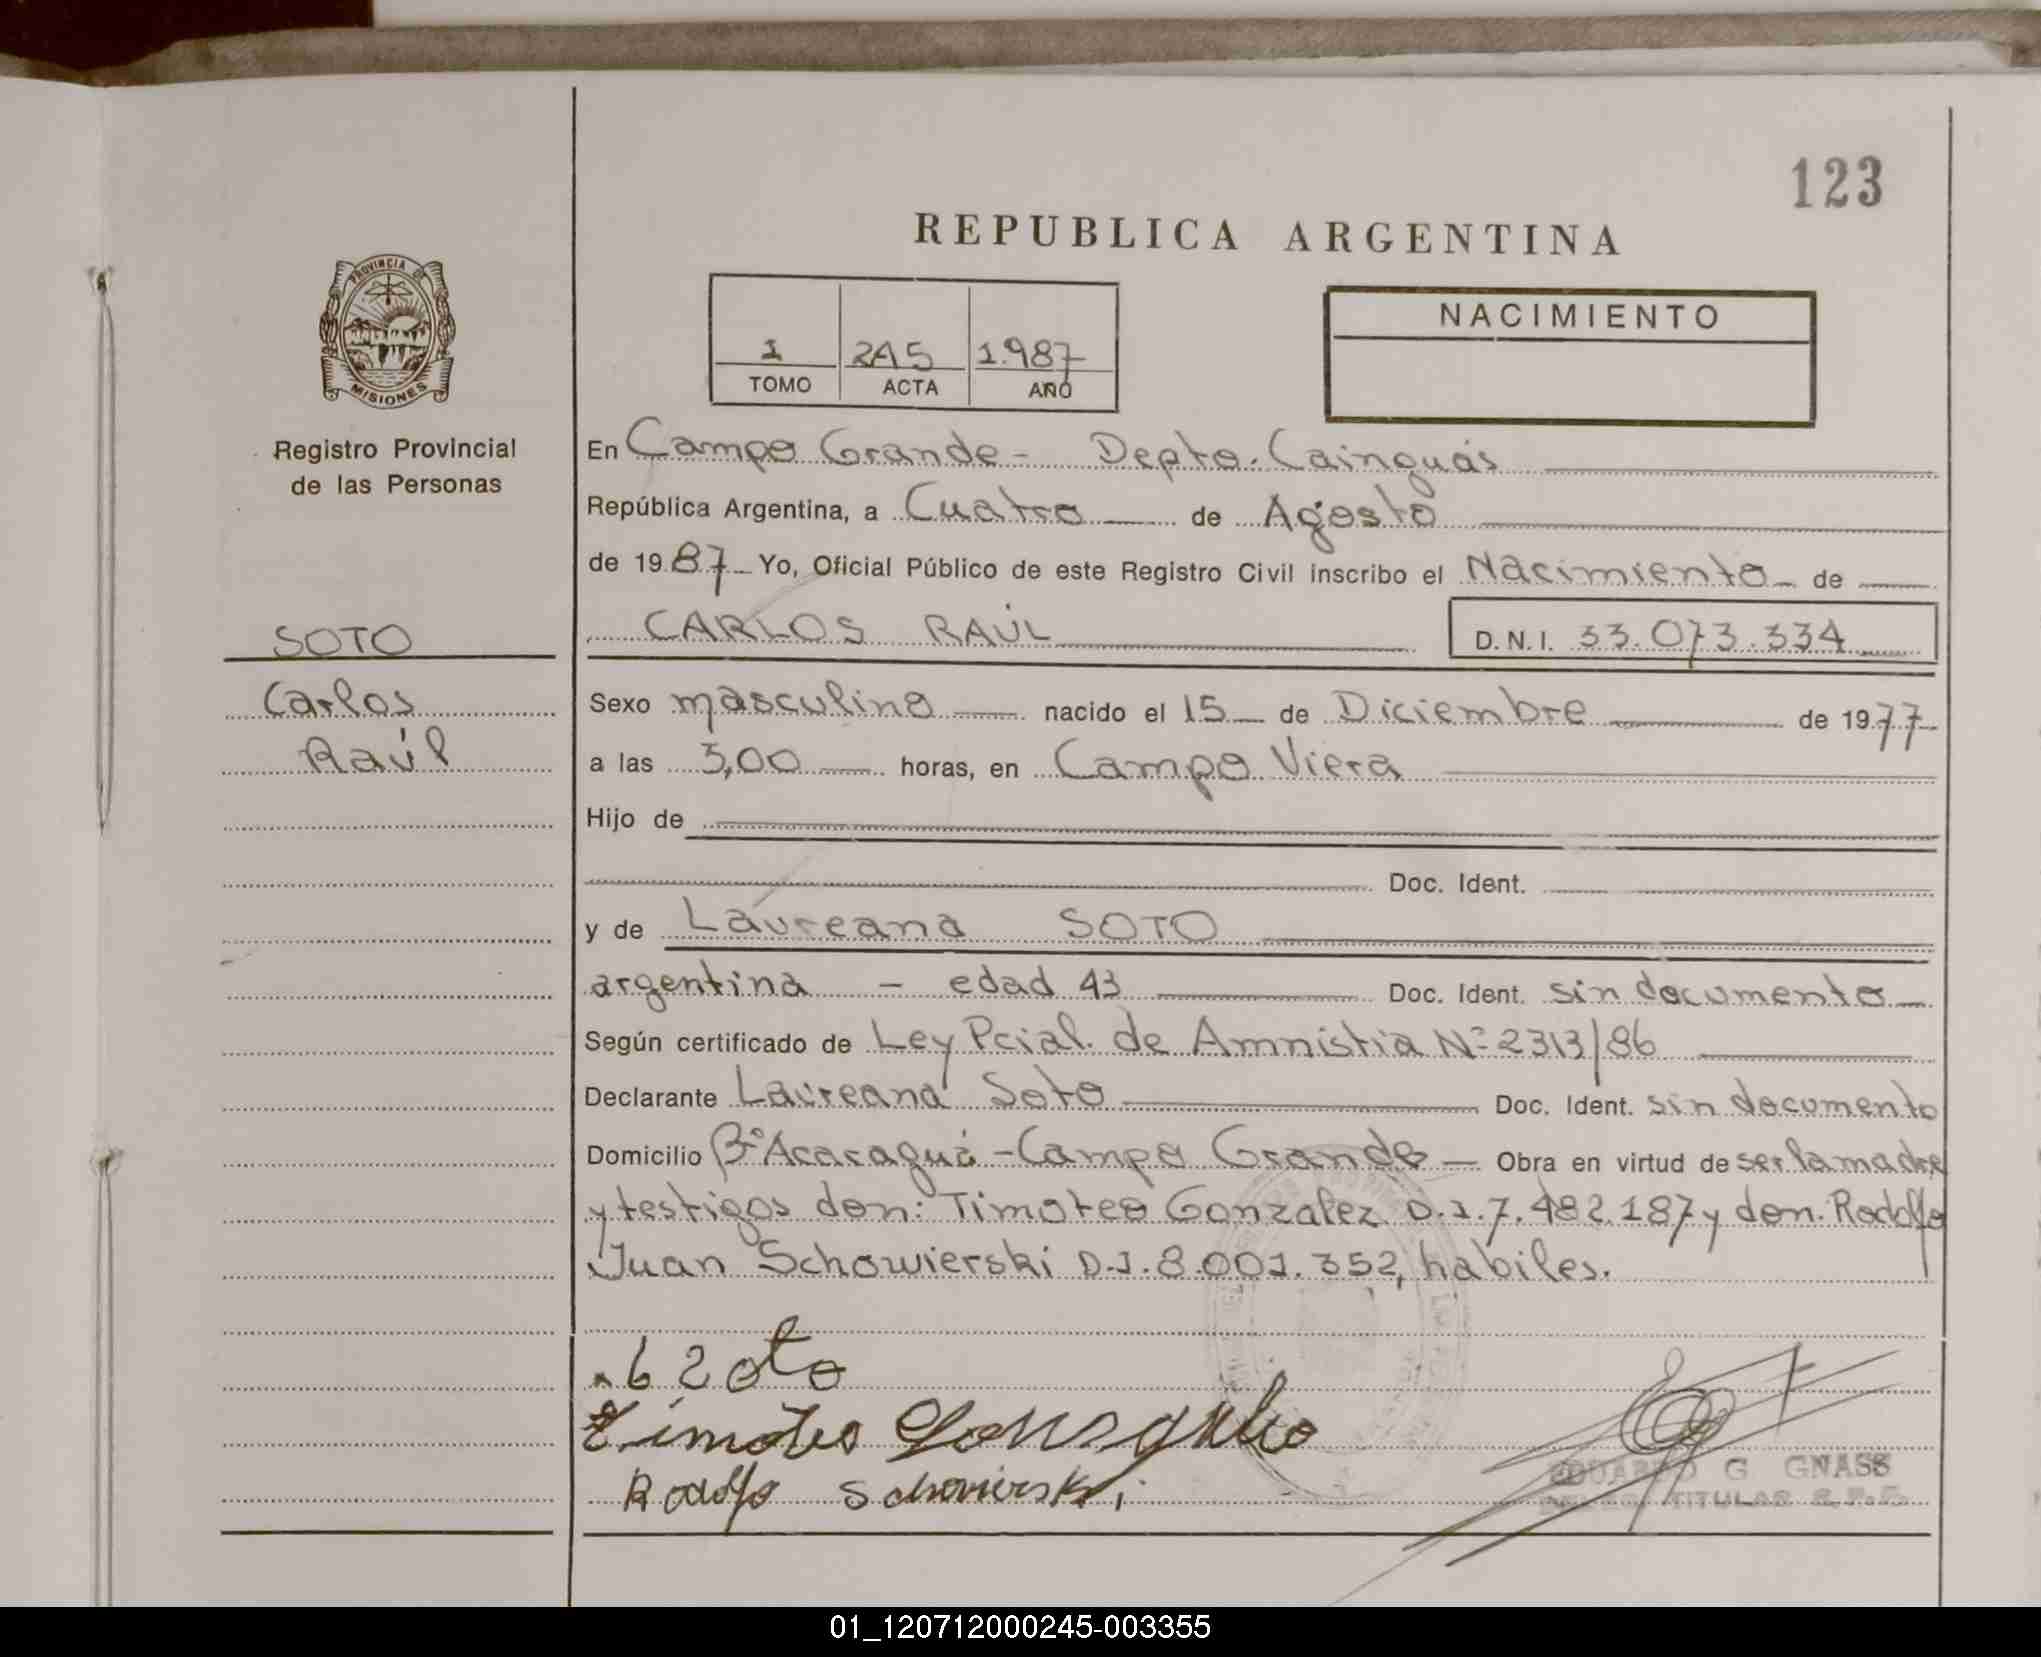 123
REPUBLICA ARGENTINA
PROVINCIA DE
MISIONES
Registro Provincial
de las Personas
1 245 1.987
TOMO ACTA AÑO
NACIMIENTO
En Campo Grande - Depto. Cainguás
República Argentina, a Cuatro de Agosto
de 1987 Yo, Oficial Público de este Registro Civil inscribo el Nacimiento de
CARLOS RAÚL D.N.I. 33.073.334
SOTO
Carlos
Raúl
Sexo masculino nacido el 15 de Diciembre de 1977
a las 3,00 horas, en Campo Viera
Hijo de
Doc. Ident.
y de Laureana SOTO
argentina - edad 43 Doc. Ident. sin documento
Según certificado de Ley Pcial. de Amnistia Nº 2313/86
Declarante Laureana Soto Doc. Ident. sin documento
Domicilio Bº Acaraguá - Campo Grande Obra en virtud de ser la madre
y testigos don: Timoteo Gonzalez D.I. 7.482.187 y don. Rodolfo
Juan Schowierski D.I. 8.001.352, habiles.
L Soto
Timoteo
Rodolfo Schowierski
EDUARDO G GNASS
TITULAR
01_120712000245-003355